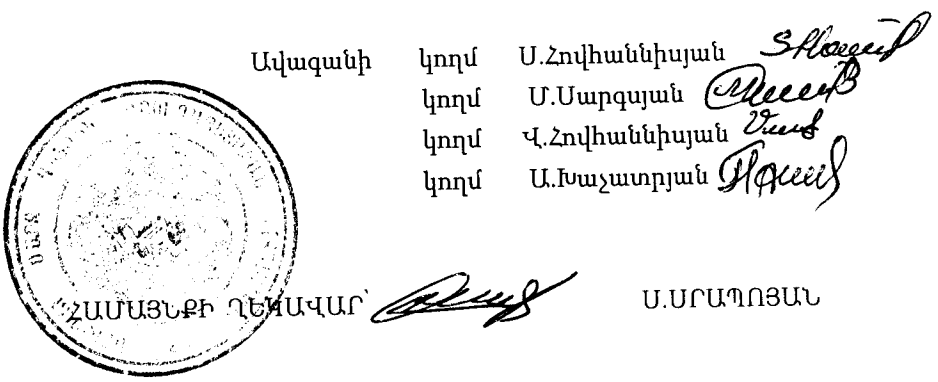 Ավագանի կողմ Ս.Հովհաննիսյան
կողմ Մ.Սարգսյան
կողմ Վ.Հովհաննիսյան
կողմ Ա.Խաչատրյան
ՀԱՄԱՅՆՔԻ ՂԵԿԱՎԱՐ՝ Ս.ՍՐԱՊՈՅԱՆ